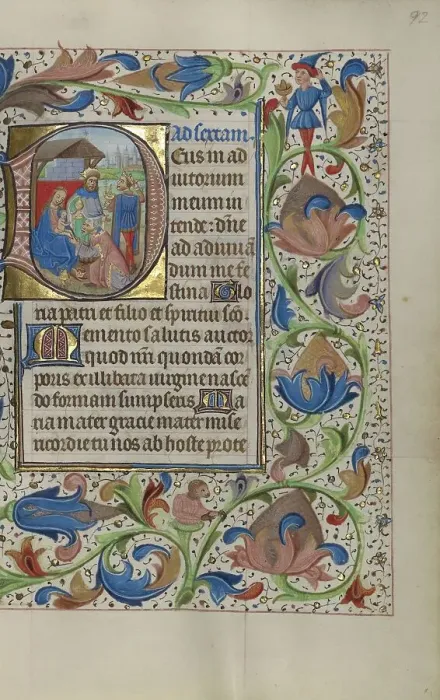 92
Ad sextam.
Deus in ad
iutorium
meum in
tende: dn̄e
ad adiuuā
dum me fe
stina Glo
ria patri et filio et spiritui sc̄o.
Memento salutis auctor
quod nr̄i quondā cor
poris ex illibata uirgine nasce
do formam sumpseris Ma
ria mater gracie mater mise
ricordie tu nos ab hoste prote